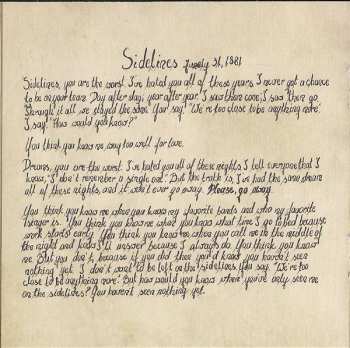 Sidelines July 31, 1981
Sidelines, you are the worst. I've hated you all of these years. I never got a chance
to be on your team. Day after day, year after year. I saw them come, I saw them go.
Through it all we stayed the same. You say, "We're too close to be anything more."
I say, "How would you know?"
You think you know me way too well for love.
Dreams, you are the worst. I've hated you all of these nights. I tell everyone that I
know, "I don't remember a single one." But the truth is, I've had the same dream
all of these nights, and it won't ever go away. Please, go away.
You think you know me when you know my favorite bands and who my favorite
singer is. You think you know me when you know what time I go to bed because
work starts early. You think you know me when you call me in the middle of
the night and I'll answer because I always do. You think you know
me. But you don't, because if you did then you'd know you haven't seen
nothing yet. I don't want to be left on the sidelines. You say, "We're too
close to be anything more." But how would you know when you've only seen me
on the sidelines? You haven't seen nothing yet.